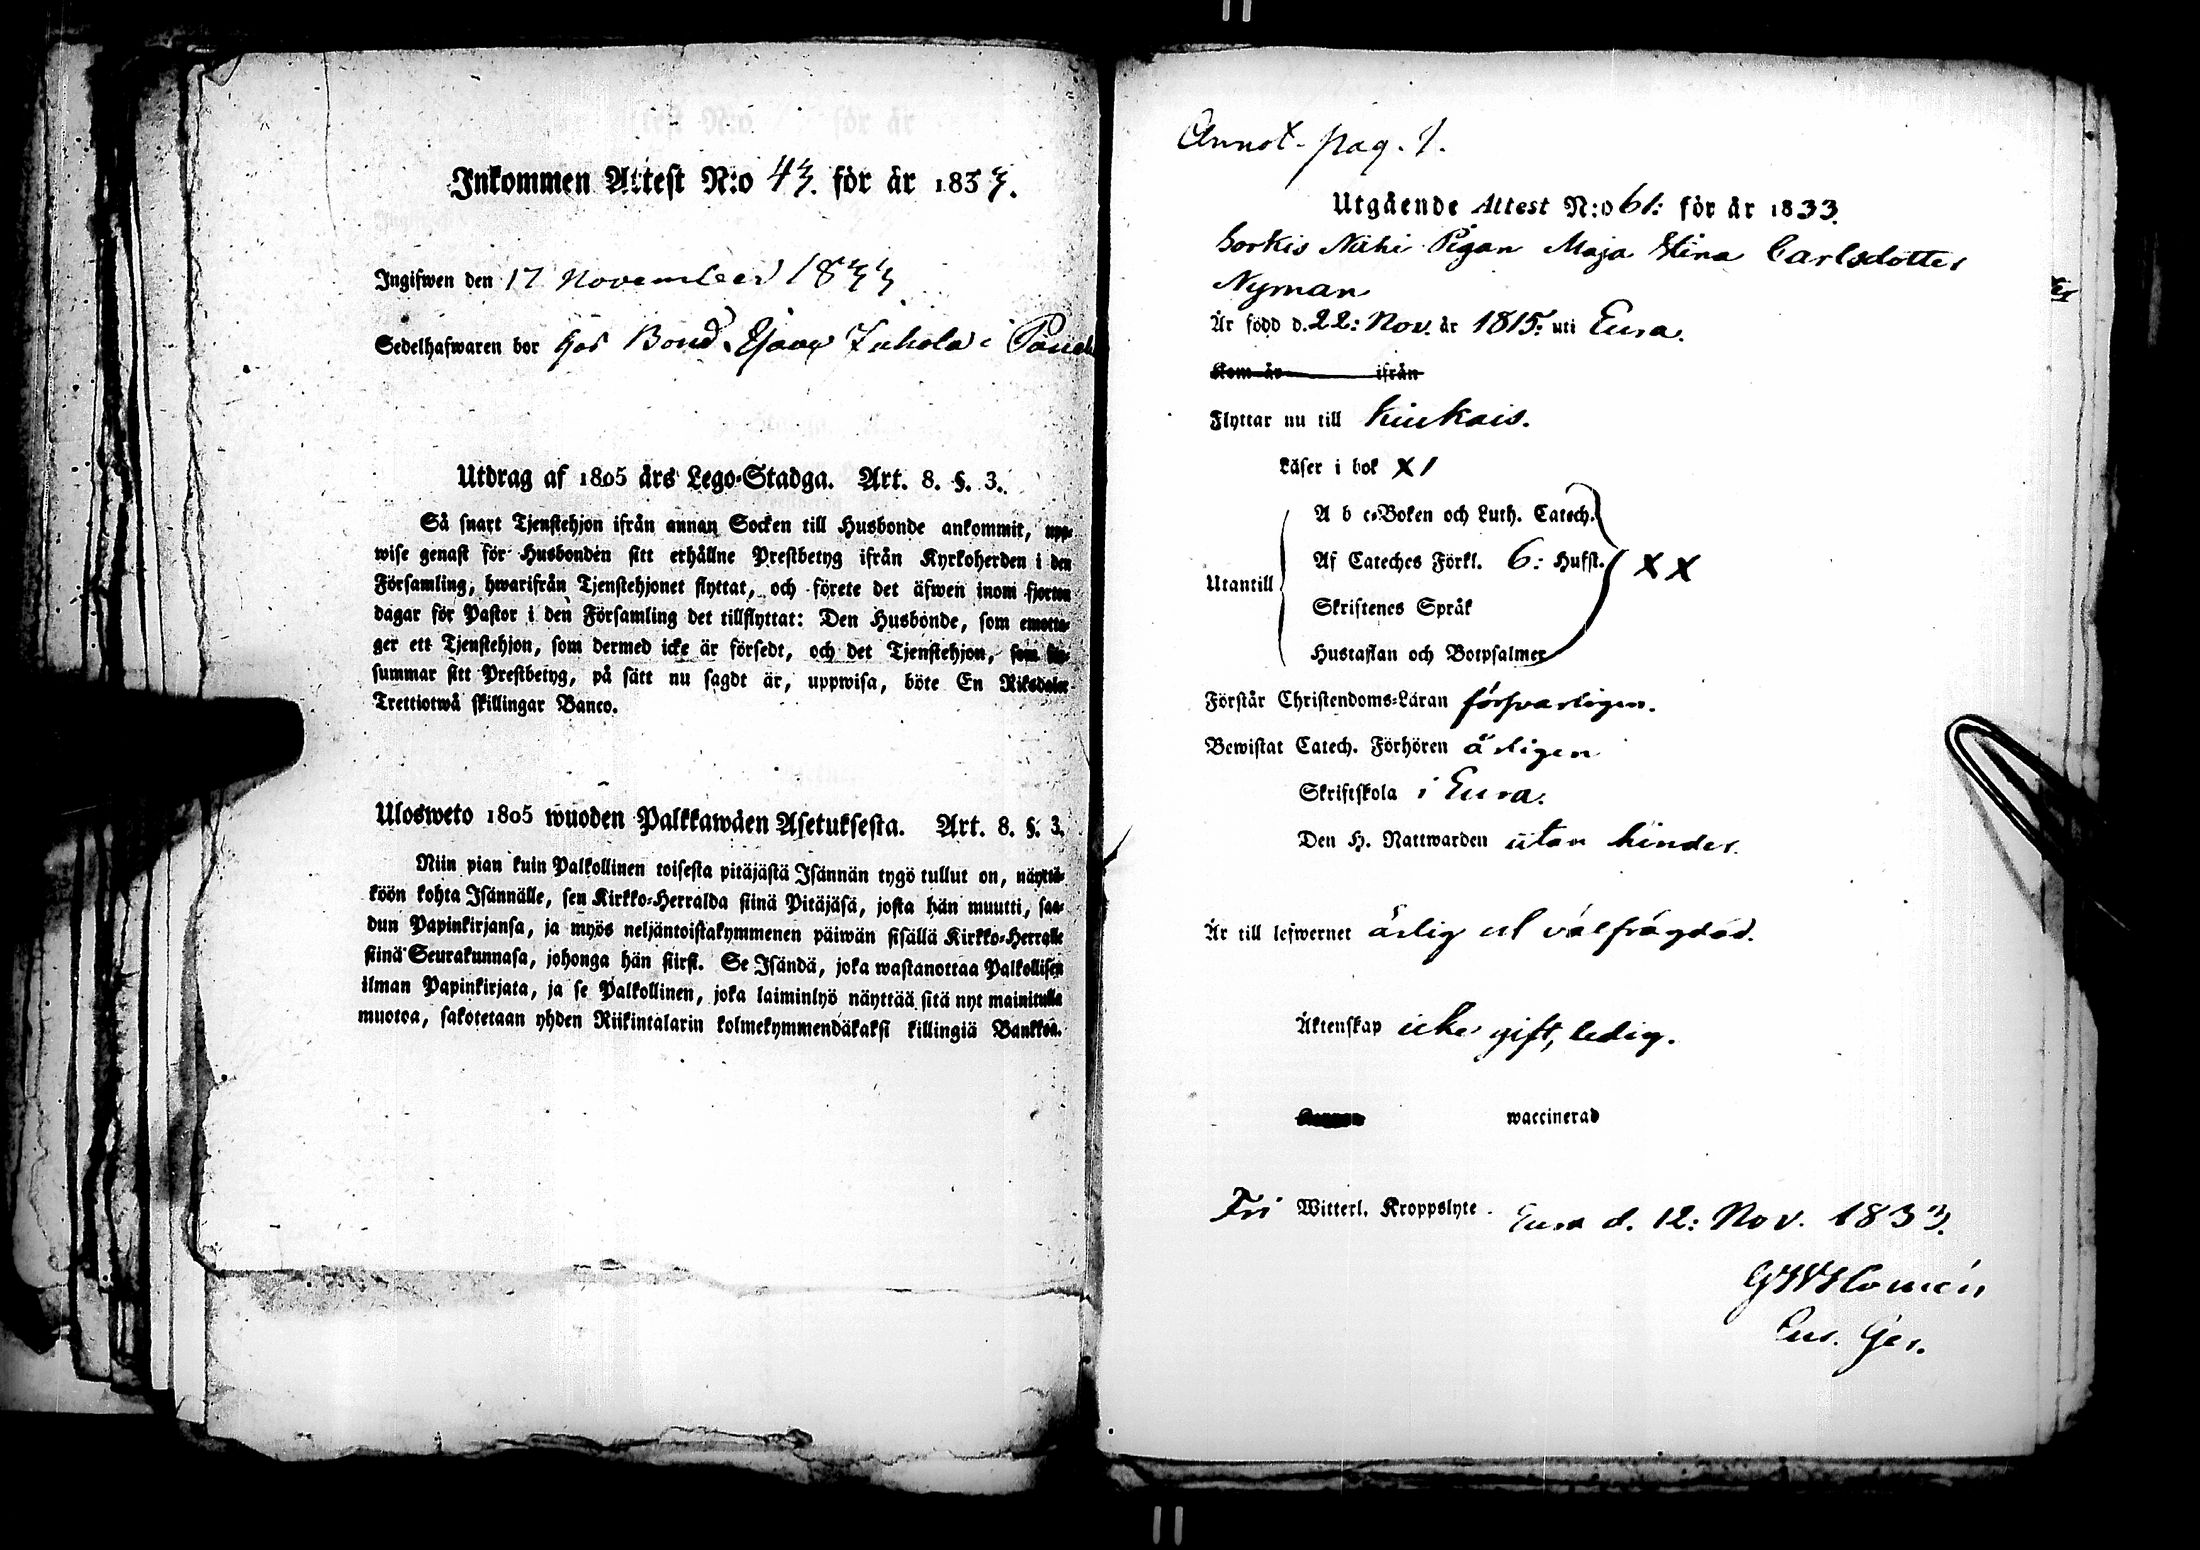 Inkommen Attest N:o 43. för år 1833.
Ingifwen den 17 November 1833
Sedelhafwaren bor hos Bond. Juhola i
Utdrag af 1805 års Lego-Stadga. Art. 8. §. 3.
Så snart Tjenstehjon ifrån annan Socken till Husbonde ankommit, upp-
wise genast för Husbonden sitt erhållne Prestbetyg ifrån Kyrkoherden i den
Församling, hwarifrån Tjenstehjonet flyttat, och förete det äfwen inom fjorton
dagar för Pastor i den Församling det tillflyttat: Den Husbonde, som emotta-
ger ett Tjenstehjon, som dermed icke är försedt, och det Tjenstehjon, som för-
summar sitt Prestbetyg, på sätt nu sagdt är, uppwisa, böte En Riksdaler
Trettiotwå skillingar Banco.
Ulosweto 1805 wuoden Palkkawäen Asetuksesta. Art. 8. §. 3.
Niin pian kuin Palkollinen toisesta pitäjästä Isännän tygö tullut on, näyttä-
köön kohta Isännälle, sen Kirkko-Herralda siinä Pitäjäsä, josta hän muutti, saa-
dun Papinkirjansa, ja myös neljäntoistakymmenen päiwän sisällä Kirkko-Herralle
siinä Seurakunnasa, johonga hän siirst. Se Isändä, joka wastanottaa Palkollisen
ilman Papinkirjata, ja se Palkollinen, joka laiminlyö näyttää sitä nyt mainitulla
muotoa, sakotetaan yhden Riikintalarin kolmekymmendäkaksi killingiä Bankkoa.
Annot. pag. 1.
Utgående Attest N:o 61: för år 1833.
Sorkis Nähi Pigan Maja Stina Carlsdotter
Nyman
Är född d. 22: Nov. år 1815: uti Eura.
Kom år ifrån
Flyttar nu till Kiukais.
Läser i bok X 1
A b c-Boken och Luth. Catech.
Af Cateches Förkl. 6: Hufst. X X
Utantill
Skriftenes Språk
Hustaflan och Botpsalmer
Förstår Christendoms-Läran försvarligen.
Bewistat Catech. Förhören årligen
Skriftskola i Eura.
Den H. Nattwarden utan hinder.
Är till lefwernet ärlig och välfrägdad.
Äktenskap icke gift, ledig.
waccinerad
Fri Witterl. Kroppslyte. Eura d. 12: Nov. 1833.